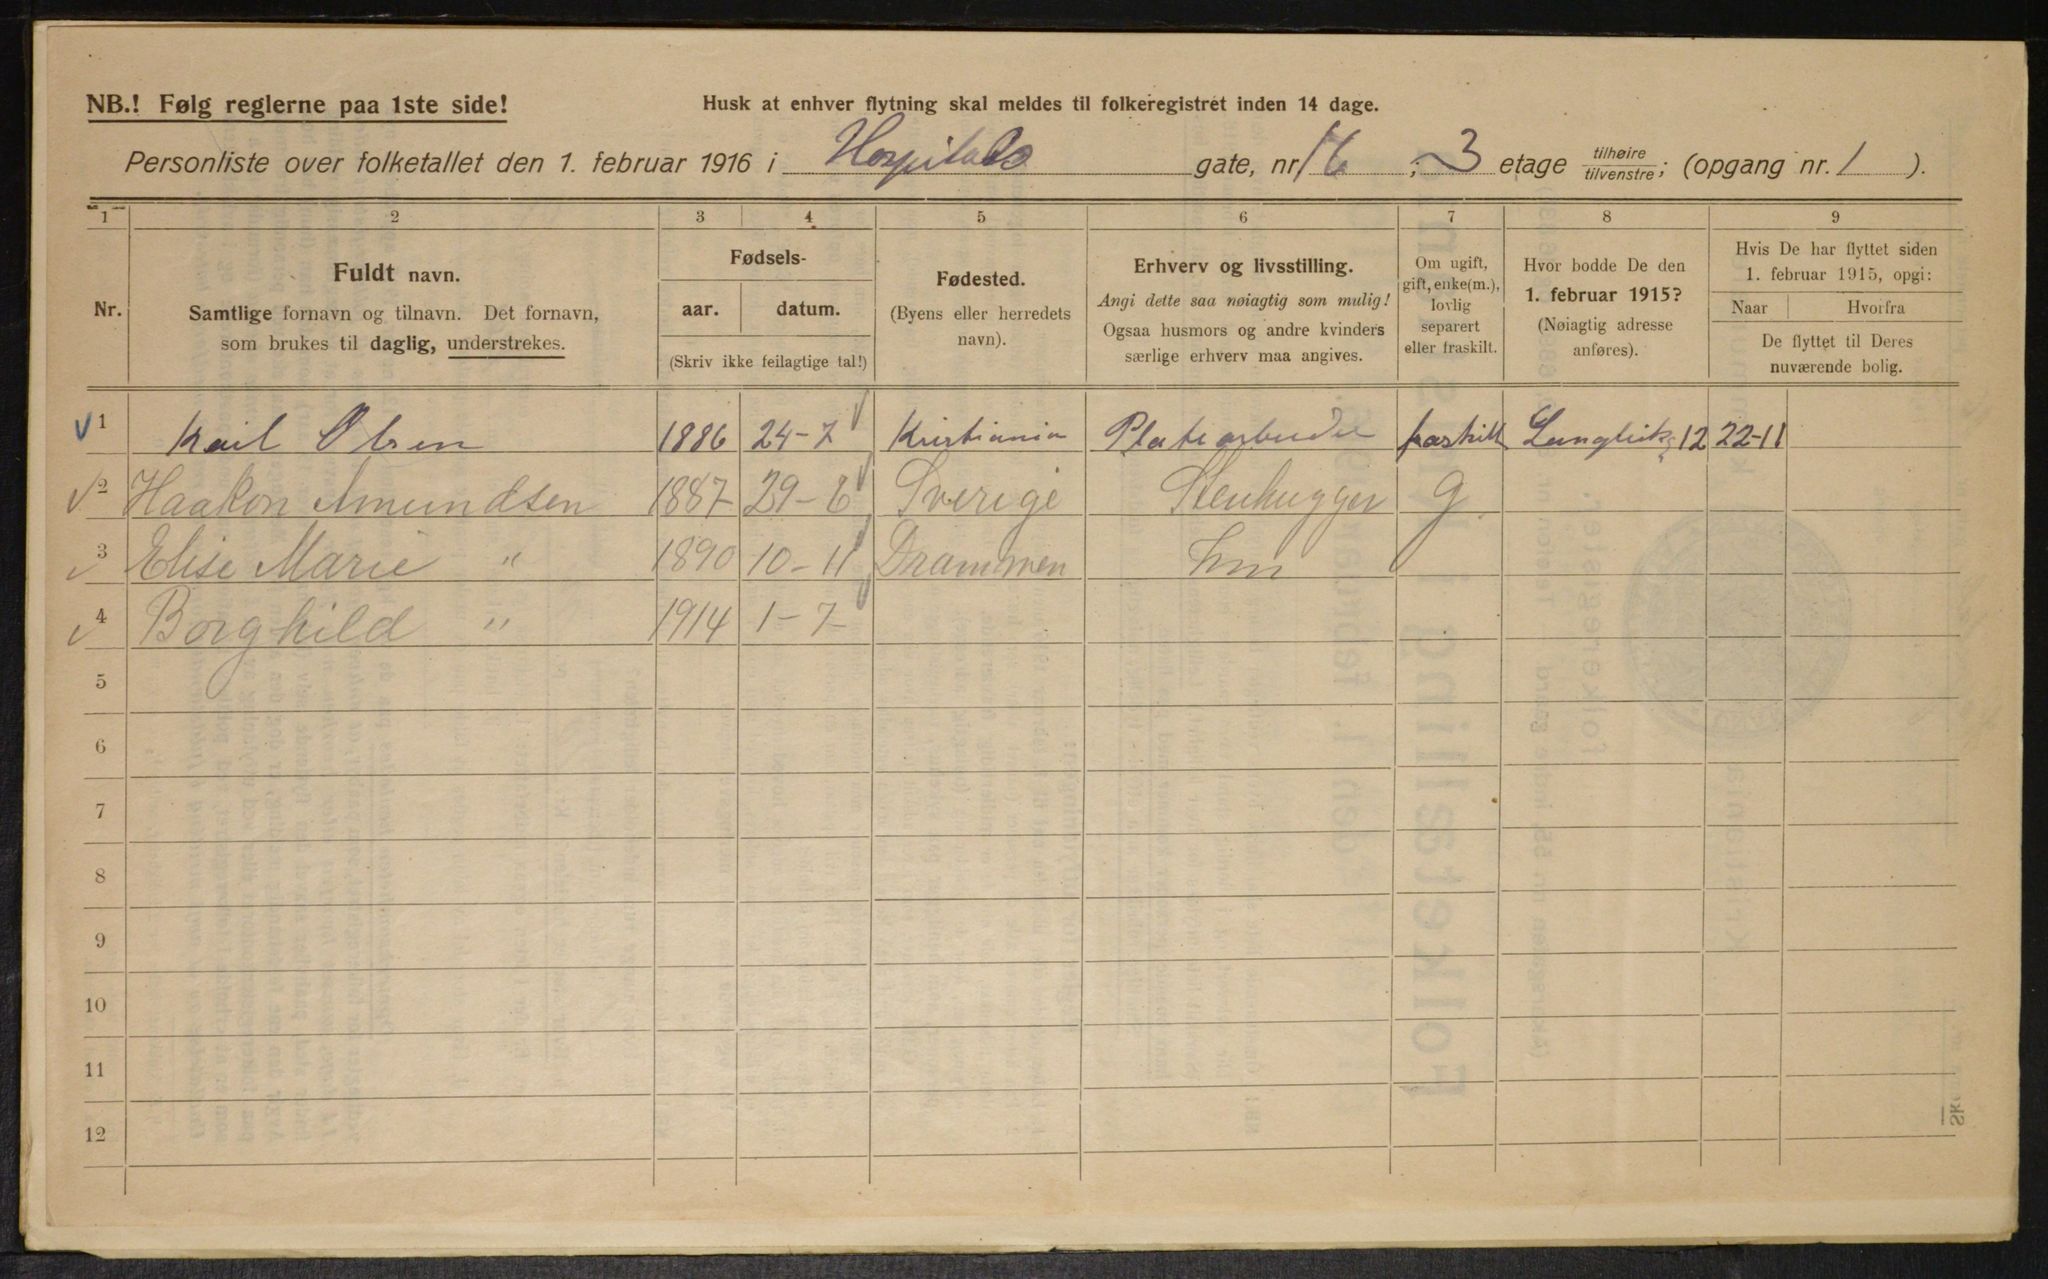 NB.! Følg reglerne paa 1ste side!
Husk at enhver flytning skal meldes til folkeregistret inden 14 dage.
Personliste over folketallet den 1. februar 1916 i Hospitals gate, nr. 16 ; 3 etage tilhøire tilvenstre; (opgang nr. 1 ).
1 2 3 4 5 6 7 8 9
Nr.
Fuldt navn.
Samtlige fornavn og tilnavn. Det fornavn,
som brukes til daglig, understrekes.
Fødsels-
aar. datum.
(Skriv ikke feilagtige tal!)
Fødested.
(Byens eller herredets
navn).
Erhverv og livsstilling.
Angi dette saa nøiagtig som mulig!
Ogsaa husmors og andre kvinders
særlige erhverv maa angives.
Om ugift,
gift, enke(m.),
lovlig
separert
eller fraskilt.
Hvor bodde De den
1. februar 1915?
(Nøiagtig adresse
anføres).
Hvis De har flyttet siden
1. februar 1915, opgi:
Naar Hvorfra
De flyttet til Deres
nuværende bolig.
1 Karl Olsen 1886 24-7 Kristiania fraskilt 12 22-11
2 Haakon Amundsen 1887 29-6 Sverige Stenhugger g
3 Elise Marie " 1890 10-11 Drammen hm
4 Borghild " 1914 1-7
5
6
7
8
9
10
11
12